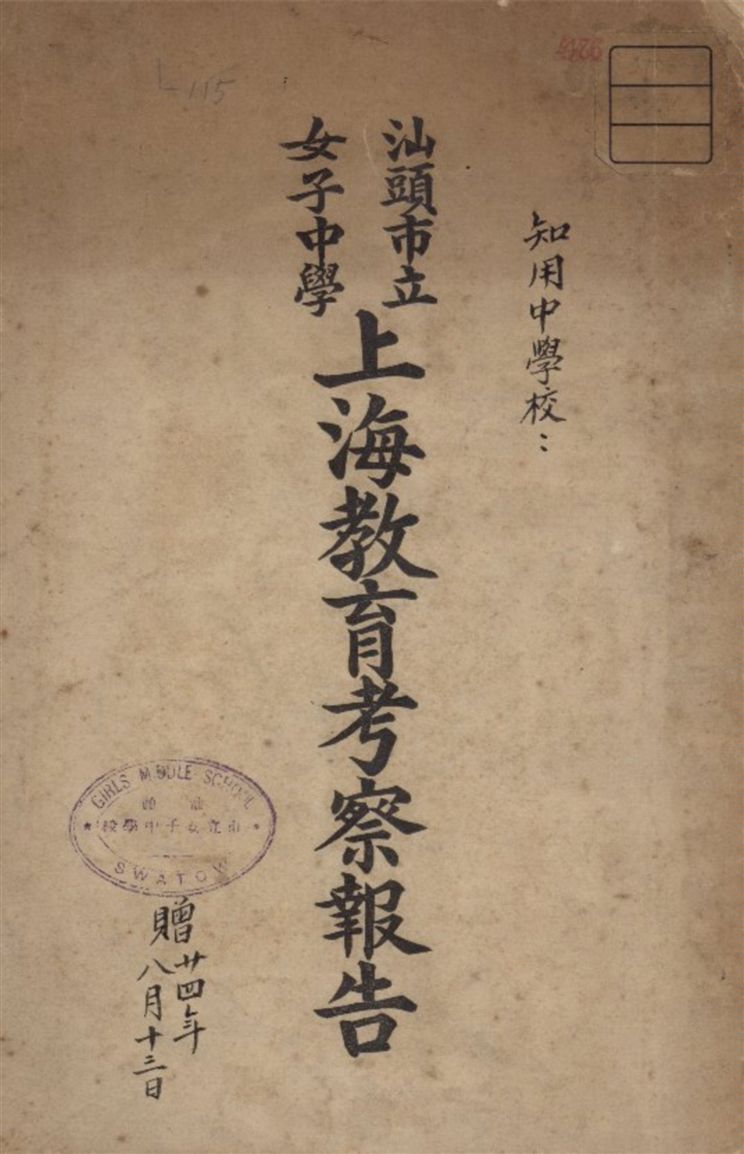 L 115
知用中學校：
汕頭市立
女子中學
上海教育考察報告
GIRLS MIDDLE SCHOOL
汕頭
市立女子中學校
SWATOW
贈
廿四年
八月十三日